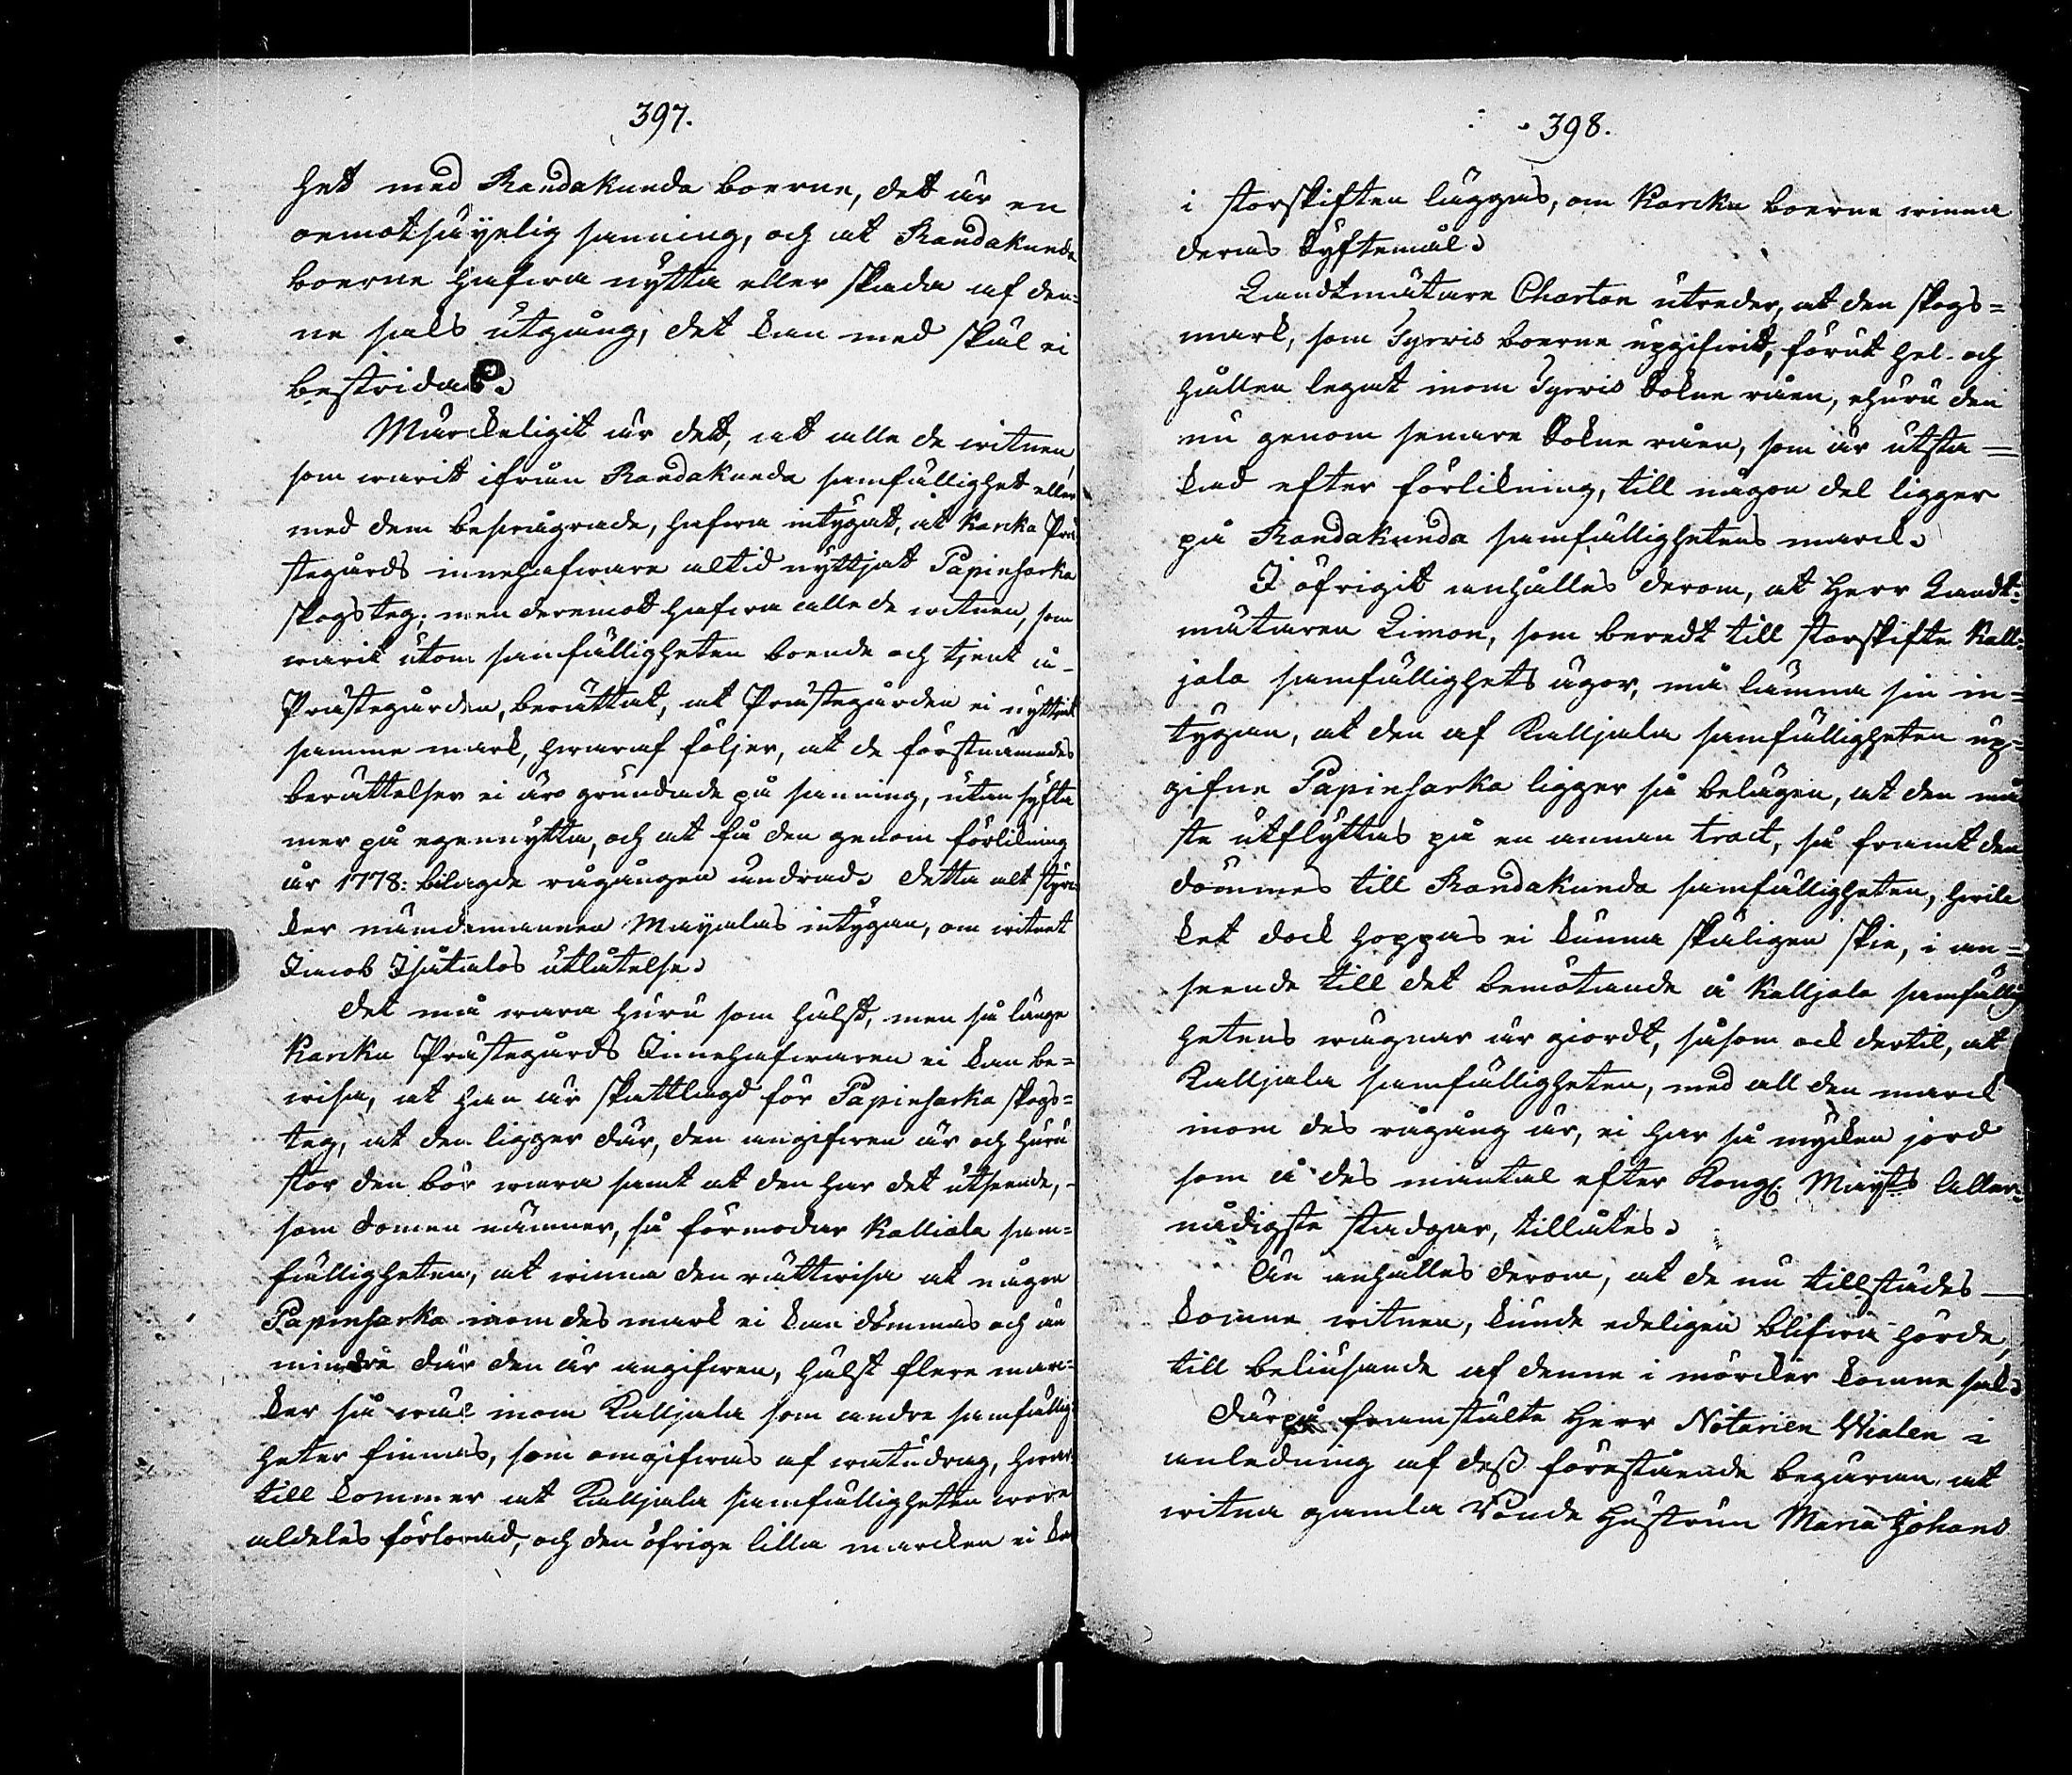 397.
het med Randakunda boerne, det är en
oemotsäyelig sanning, och at Randakunda
boerne hafwa nytta eller skada af den=
ne saks utgång, det kan med skäl ei
bestridas.
Märckeligit är det, at alle de witnen,
som warit ifrån Randakunda samfällighet eller
med dem beswågrade, hafwa intygat, at Karcku Prä
stegårds innehafware altid nyttjat Papinsarka
skogsteg; men deremot hafwa alle de witnen, som
warit utom samfälligheten boende och tjent i
Prästegården, berättat, at Prästegården ei nyttjat
samma mark, hwaraf följer, at de förstnämndes
berättelser ei äro grundade på sanning, utan syfta
mer på egennytta, och at få den genom förlikning
år 1778: bilagde rågången ändrad. Detta alt styrc=
ker nämdemannen Mayalas intygan, om witnet
Jacob Isätalos utlåtelse.
Det må wara huru som hälst, men så länge
Karcku Prästegårds Innehafwaren ei kan be=
wisa, at han är skattlagd för Papinsarka skogs=
teg, at den ligger där, den angifwen är och huru
stor den bör wara samt at den har det utseende,
som domen nämner, så förmodar Kalliala sam=
fälligheten, at winna den rättwisa at någon
Papinsarka inom des mark ei kan dömmas och än
mindre där den är angifwen, hälst flere marc=
ker så wäl inom Kalljala som andre samfällig
heter finnas, som omgifwas af watudrag, hwar=
till kommer at Kalljala samfälligheten wore
aldeles förlorad, och den öfrige lilla marcken ei kan
398.
i storskiften läggas, om Karcku boerne winna
deras Syftemål.
Landtmätare Charton utreder, at den skogs=
mark, som Tyrwis boerne upgifwit, förut hel och
hållen legat inom Tyrwis Sokne råen, ehuru den
nu genom senare Sokne råen, som är utsta=
kad efter förlikning, till någon del ligger
på Randakunda samfällighetens marck.
I öfrigit anhålles derom, at Herr Landt=
mätaren Limon, som beredt till storskifte Kall=
jala samfällighets ägor, må lämna sin in=
tygan, at den af Kalljala samfälligheten up=
gifne Papinsarka ligger så belägen, at den må
ste utflyttas på en annan tract, så framt den
dömmes till Randakunda samfälligheten, hwil
ket dock hoppas ei kunna skäligen skie, i an=
seende till det bemötande å Kalljala samfällig
hetens wägnar är giordt, såsom ock dertil, at
Kalljala samfälligheten, med all den marck
inom des rågång är, ei har så mycken jord
som å des mantal efter Kongl. Mayts Aller=
nådigste stadgar, tillåtes.
Än anhålles derom, at de nu tillstädes
komne witnen, kunde edeligen blifwa hörde,
till beliusande af denne i mörcker komne sak.
Därpå framstälte Herr Notarien Wialen i
anledning af dess förestående begäran at
witna gamla Bonde Hustrun Maria Johans